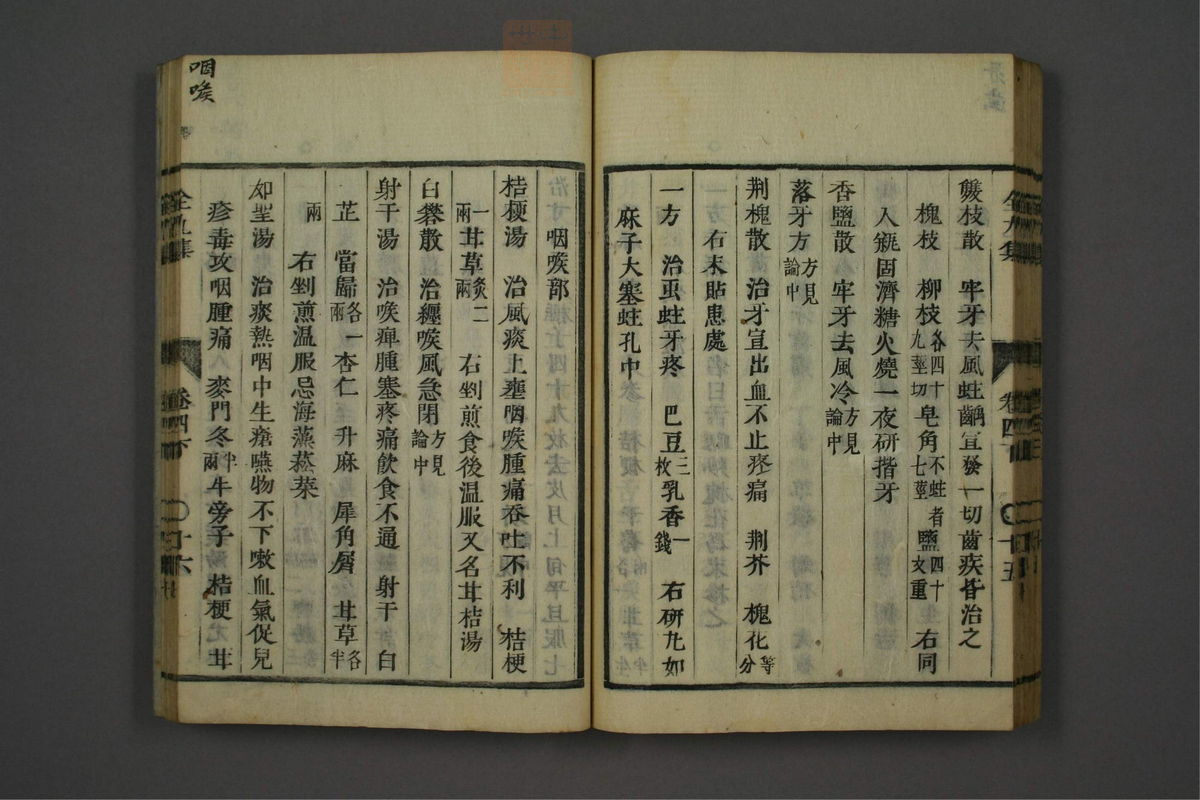 牢牙去風蛀齲宣發一切齒疾皆治之
槐枝 柳枝各四十九莖切皂角不蛀者七莖鹽四十文重 右同
入瓶固濟糖火燒一夜研揩牙
香鹽散 牢牙去風冷方見論中
落牙方方見論中
荆槐散 治牙宣出血不止疼痛 荆芥 槐花等分
右末貼患處
一方 治蚛蛀牙疼 巴豆三枚乳香一錢 右研九如
麻子大塞蛀孔中
咽喉
咽喉部
桔梗湯 治風痰上壅咽喉腫痛吞吐不利 桔梗
一兩甘草炙二兩 右剉煎食後温服又名甘桔湯
白礬散 治纒喉風急閉方見論中
射干湯 治喉痺腫塞疼痛飲食不通 射干 白
芷 當歸各一兩杏仁 升麻 犀角屑 甘草各半
兩 右剉煎温服忌海藻菘菜
如聖湯 治痰熱咽中生瘡嚥物不下嗽血氣促兒
疹毒攻咽腫痛 麥門冬半兩牛旁子 桔梗 甘
卷四下
十六
十五